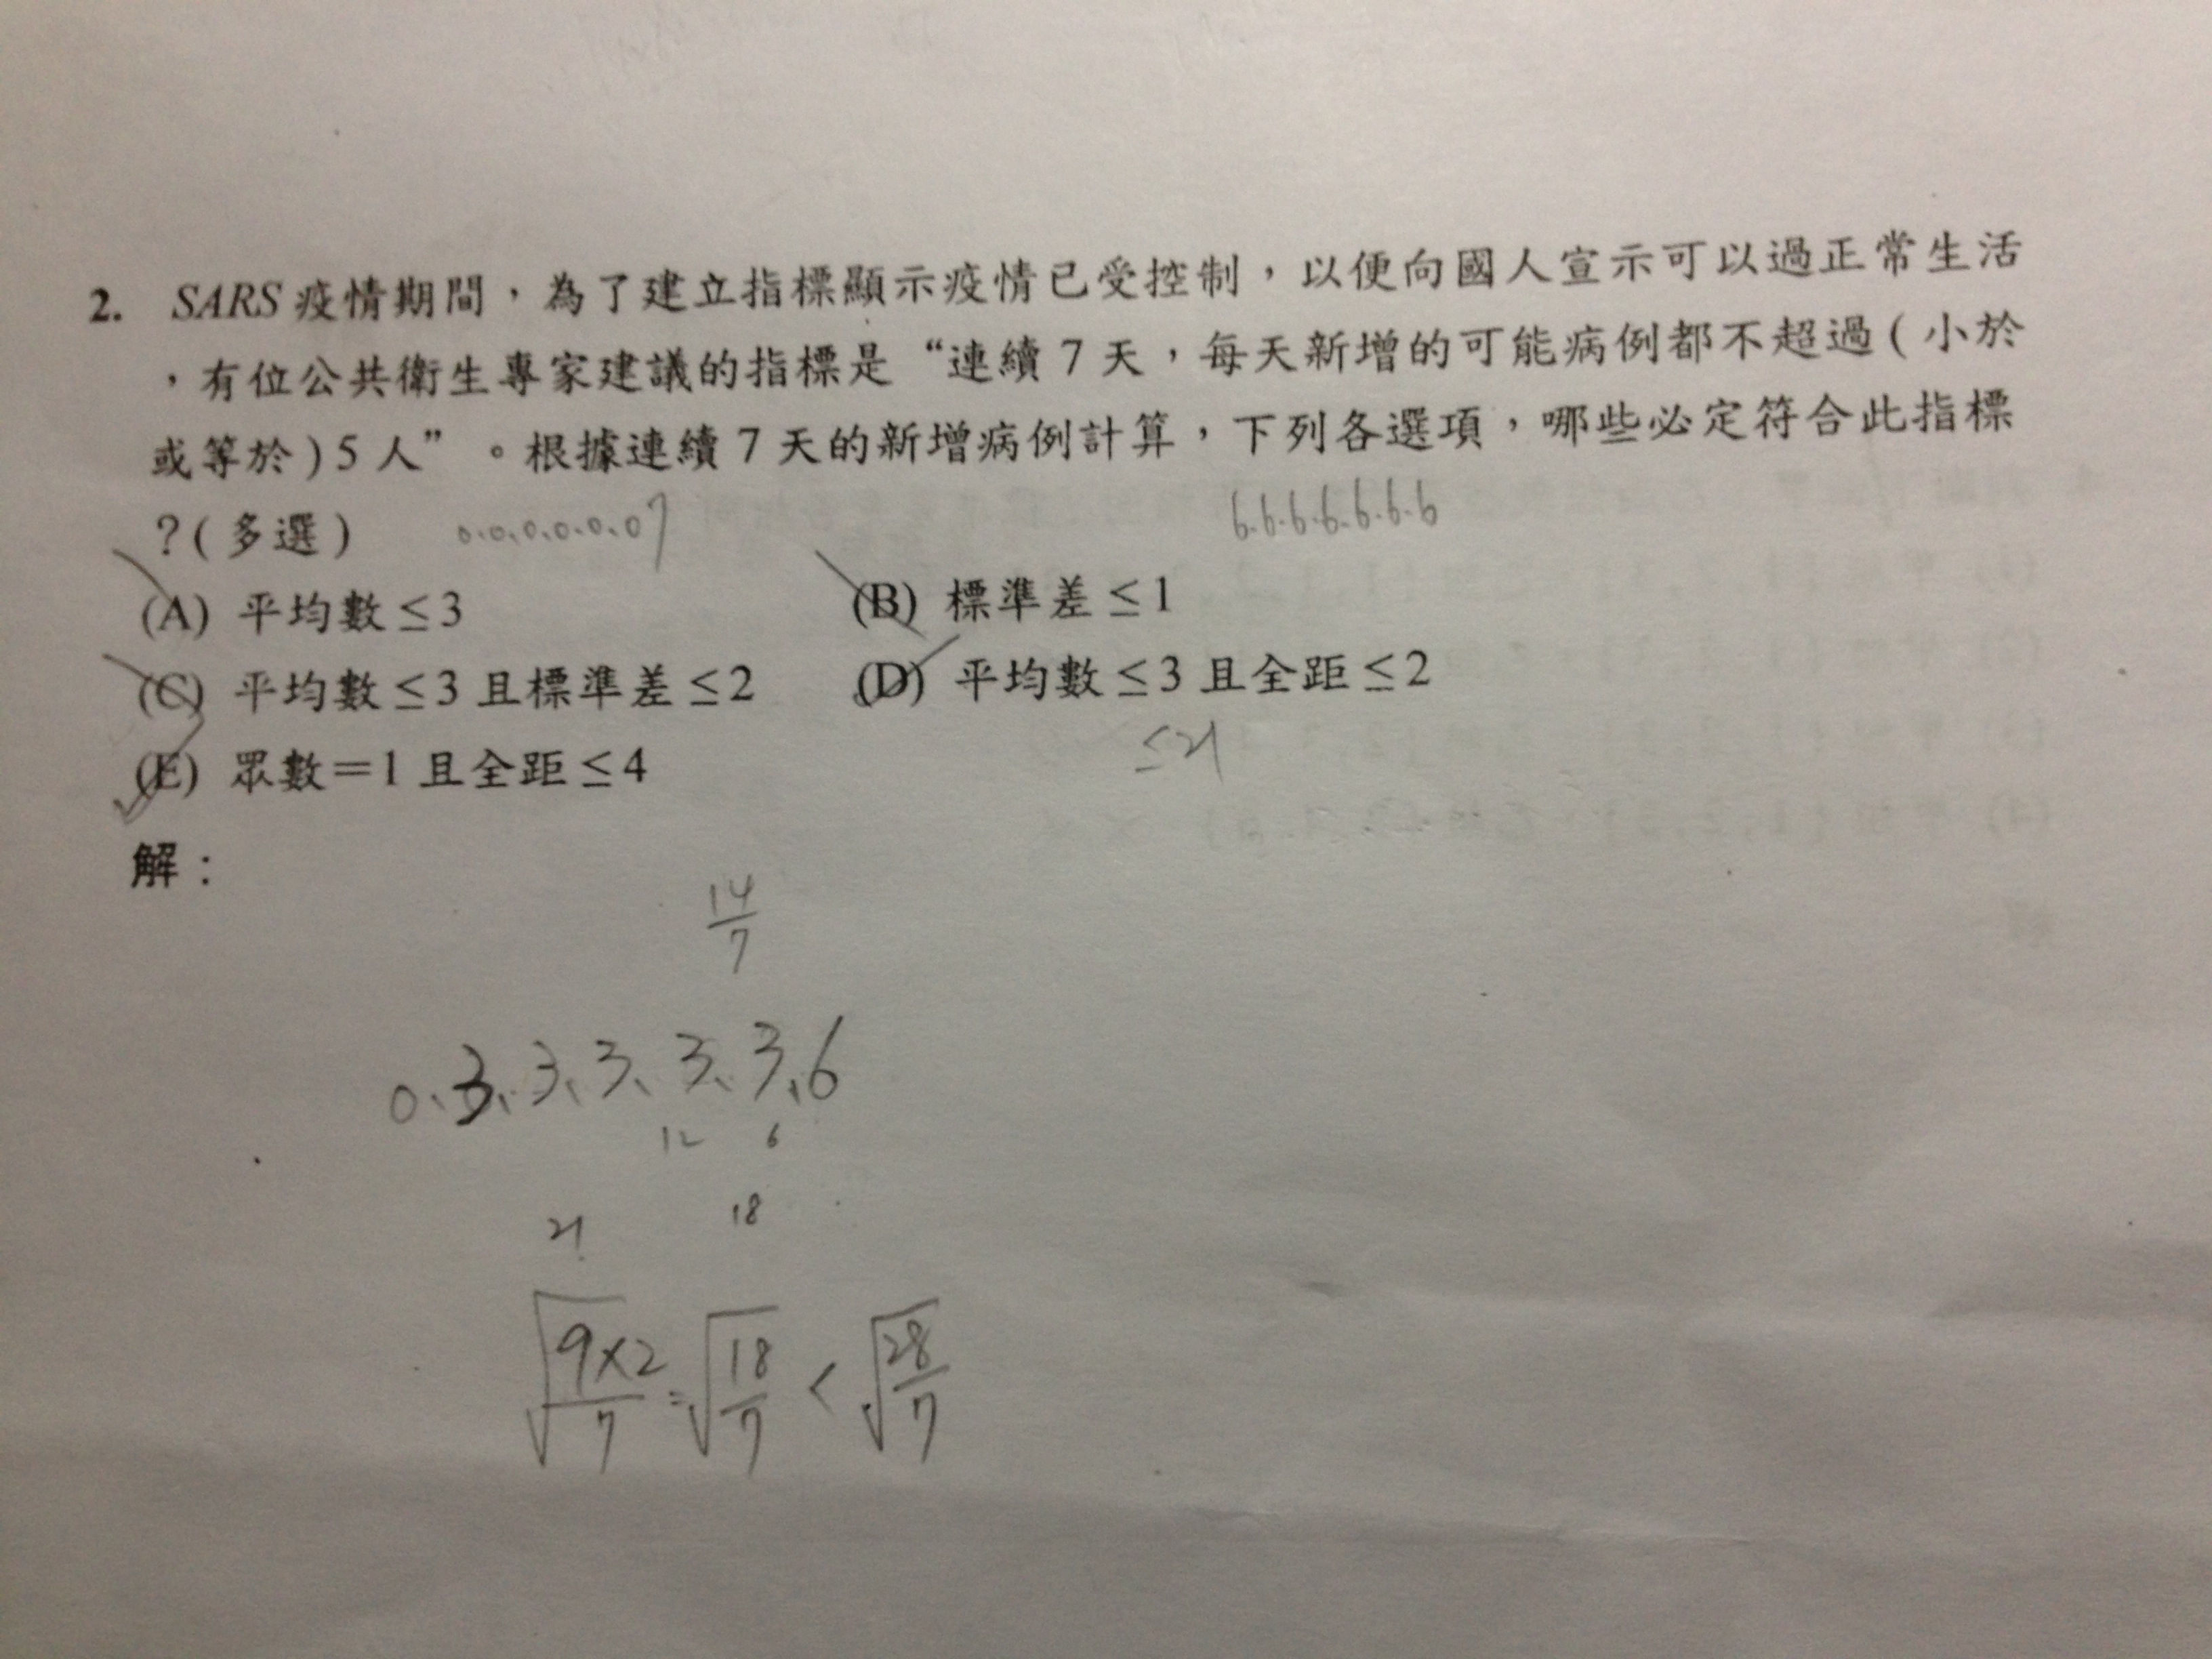 2. SARS 疫情期間，為了建立指標顯示疫情已受控制，以便向國人宣示可以過正常生活
，有位公共衛生專家建議的指標是“連續 7 天，每天新增的可能病例都不超過(小於
或等於)5 人”。根據連續 7 天的新增病例計算，下列各選項，哪些必定符合此指標
?(多選) 0.0.0.0.0.0 7 6.6.6.6.6.6.6
(A) 平均數≤3 (B) 標準差≤1
(C) 平均數≤3 且標準差≤2 (D) 平均數≤3 且全距≤2
≤21
(E) 眾數=1 且全距≤4
解：
14/7
0、3、3、3、3、3、6
12 6
21 18
√(9×2/7) = √(18/7) < √(28/7)